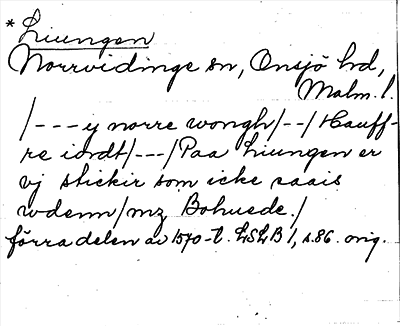 * Liungen
Norrvidinge sn, Onsjö hd,
Malm. l.
/---ij norre wongh/--/Hauff-
re iordt/---/Paa Liungen er
vj stickir som icke saais
wdenn/mz Bohuede./
förra delen av 1570-t. LSLB 1, s.86. orig.